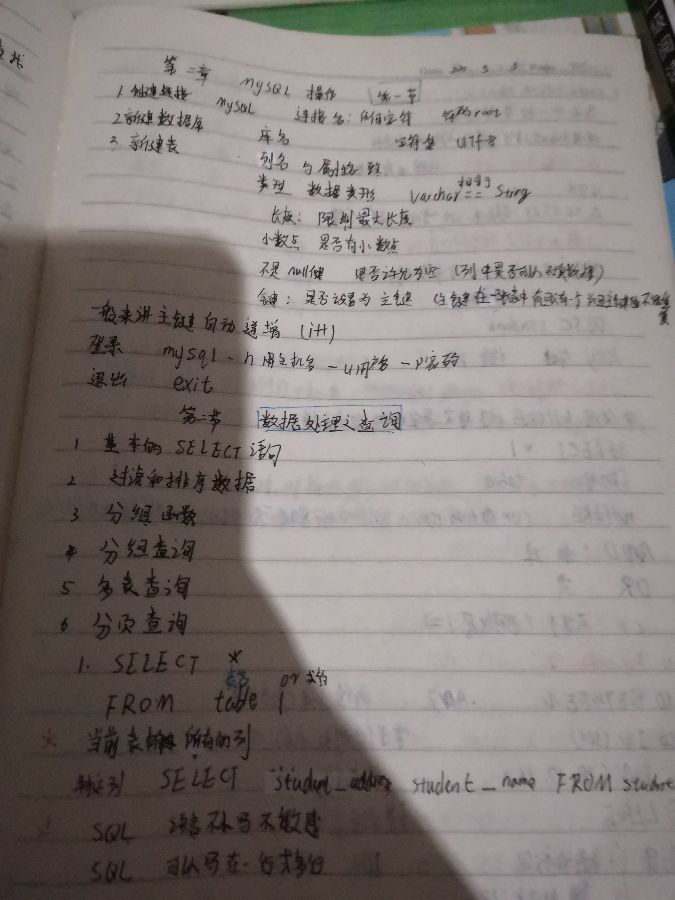 第二章 MySQL 操作 第一节
1. 创建连接 MySQL 连接名：任何字符 密码root
2. 新建数据库 库名 字符集 UTF8
3. 新建表 列名 与属性名一致
类型 数据类型 Varchar 相当于 == String
长度：限制最大长度
小数点 是否有小数点
不是null键 是否许允为空（列中是否可以不填数据）
键：是否设置为主键
一般来讲主键自动递增（i++）
登录 mysql -h 主机名 -u用户名 -P密码
退出 exit
第二节 数据处理之查询
1 基本的 SELECT 语句
2 过滤和排序数据
3 分组函数
4 分组查询
5 多表查询
6 分页查询
1. SELECT *
or
FROM table 1
* 当前表 所有的列
指定列 SELECT student_address student_name FROM student
SQL 语言不大写不敏感
SQL 可以写在一行或多行